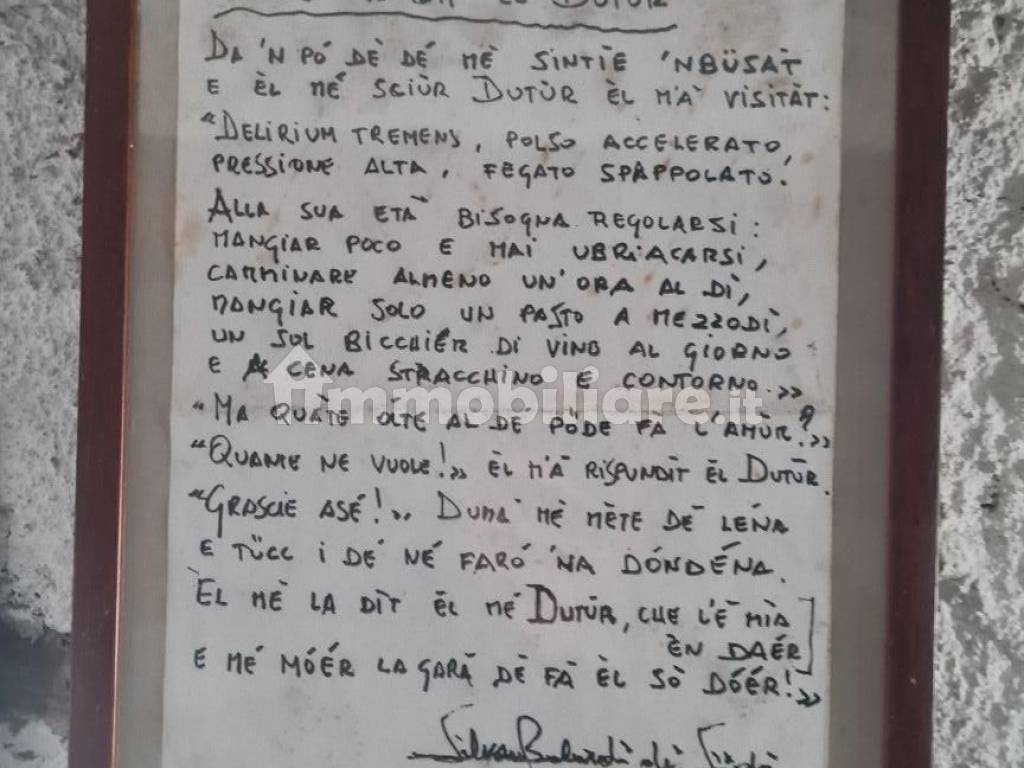 DUTÜR
DA 'N PÓ DÈ DÉ MÈ SINTIÈ 'NBÜSAT
E ÈL MÉ SCIÜR DUTÜR ÈL M'À VISITÀT:
"DELIRIUM TREMENS, POLSO ACCELERATO,
PRESSIONE ALTA, FEGATO SPAPPOLATO.
ALLA SUA ETÀ BISOGNA REGOLARSI:
MANGIAR POCO E MAI UBRIACARSI,
CAMMINARE ALMENO UN'ORA AL DÌ,
MANGIAR SOLO UN PASTO A MEZZODÌ,
UN SOL BICCHIÉR DI VINO AL GIORNO
E A CENA STRACCHINO E CONTORNO.»
immobiliare.it
"MA QUÀTE ÓLTE AL DÉ PÖDE FÀ L'AMÙR?»
"QUANTE NE VUOLE!» ÈL M'À RISPUNDÌT ÈL DUTÙR.
"GRASCIE ASÉ!» DUMÀ MÈ MÈTE DÉ LÉNA
E TÜCC I DÉ NÉ FARÓ 'NA DÓNDÉNA.
ÈL MÈ LA DÌT ÈL MÉ DUTÙR, CHE L'É MÌA
ÈN DAÉR
E MÉ MÓÉR LA GARÀ DÈ FÀ ÈL SÒ DÓÉR!»